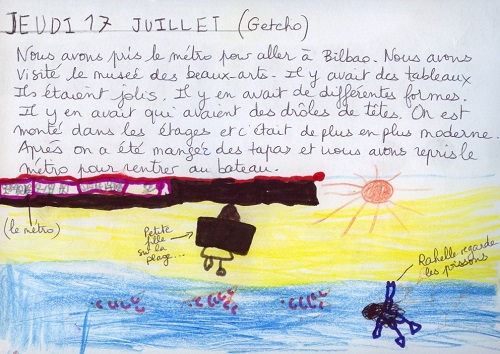 JEUDI 17 JUILLET (Getcho)
Nous avons pris le métro pour aller à Bilbao. Nous avons
visité le museé des beaux-arts. Il y avait des tableaux
Ils étaient jolis. Il y en avait de différentes formes.
Il y en avait qui avaient des drôles de têtes. On est
monté dans les étages et c'était de plus en plus moderne.
Après on a été manger des tapas et nous avons repris le
métro pour rentrer au bateau.
(le métro)
Petite
fille
sur la
plage...
Rahelle regarde
les poissons